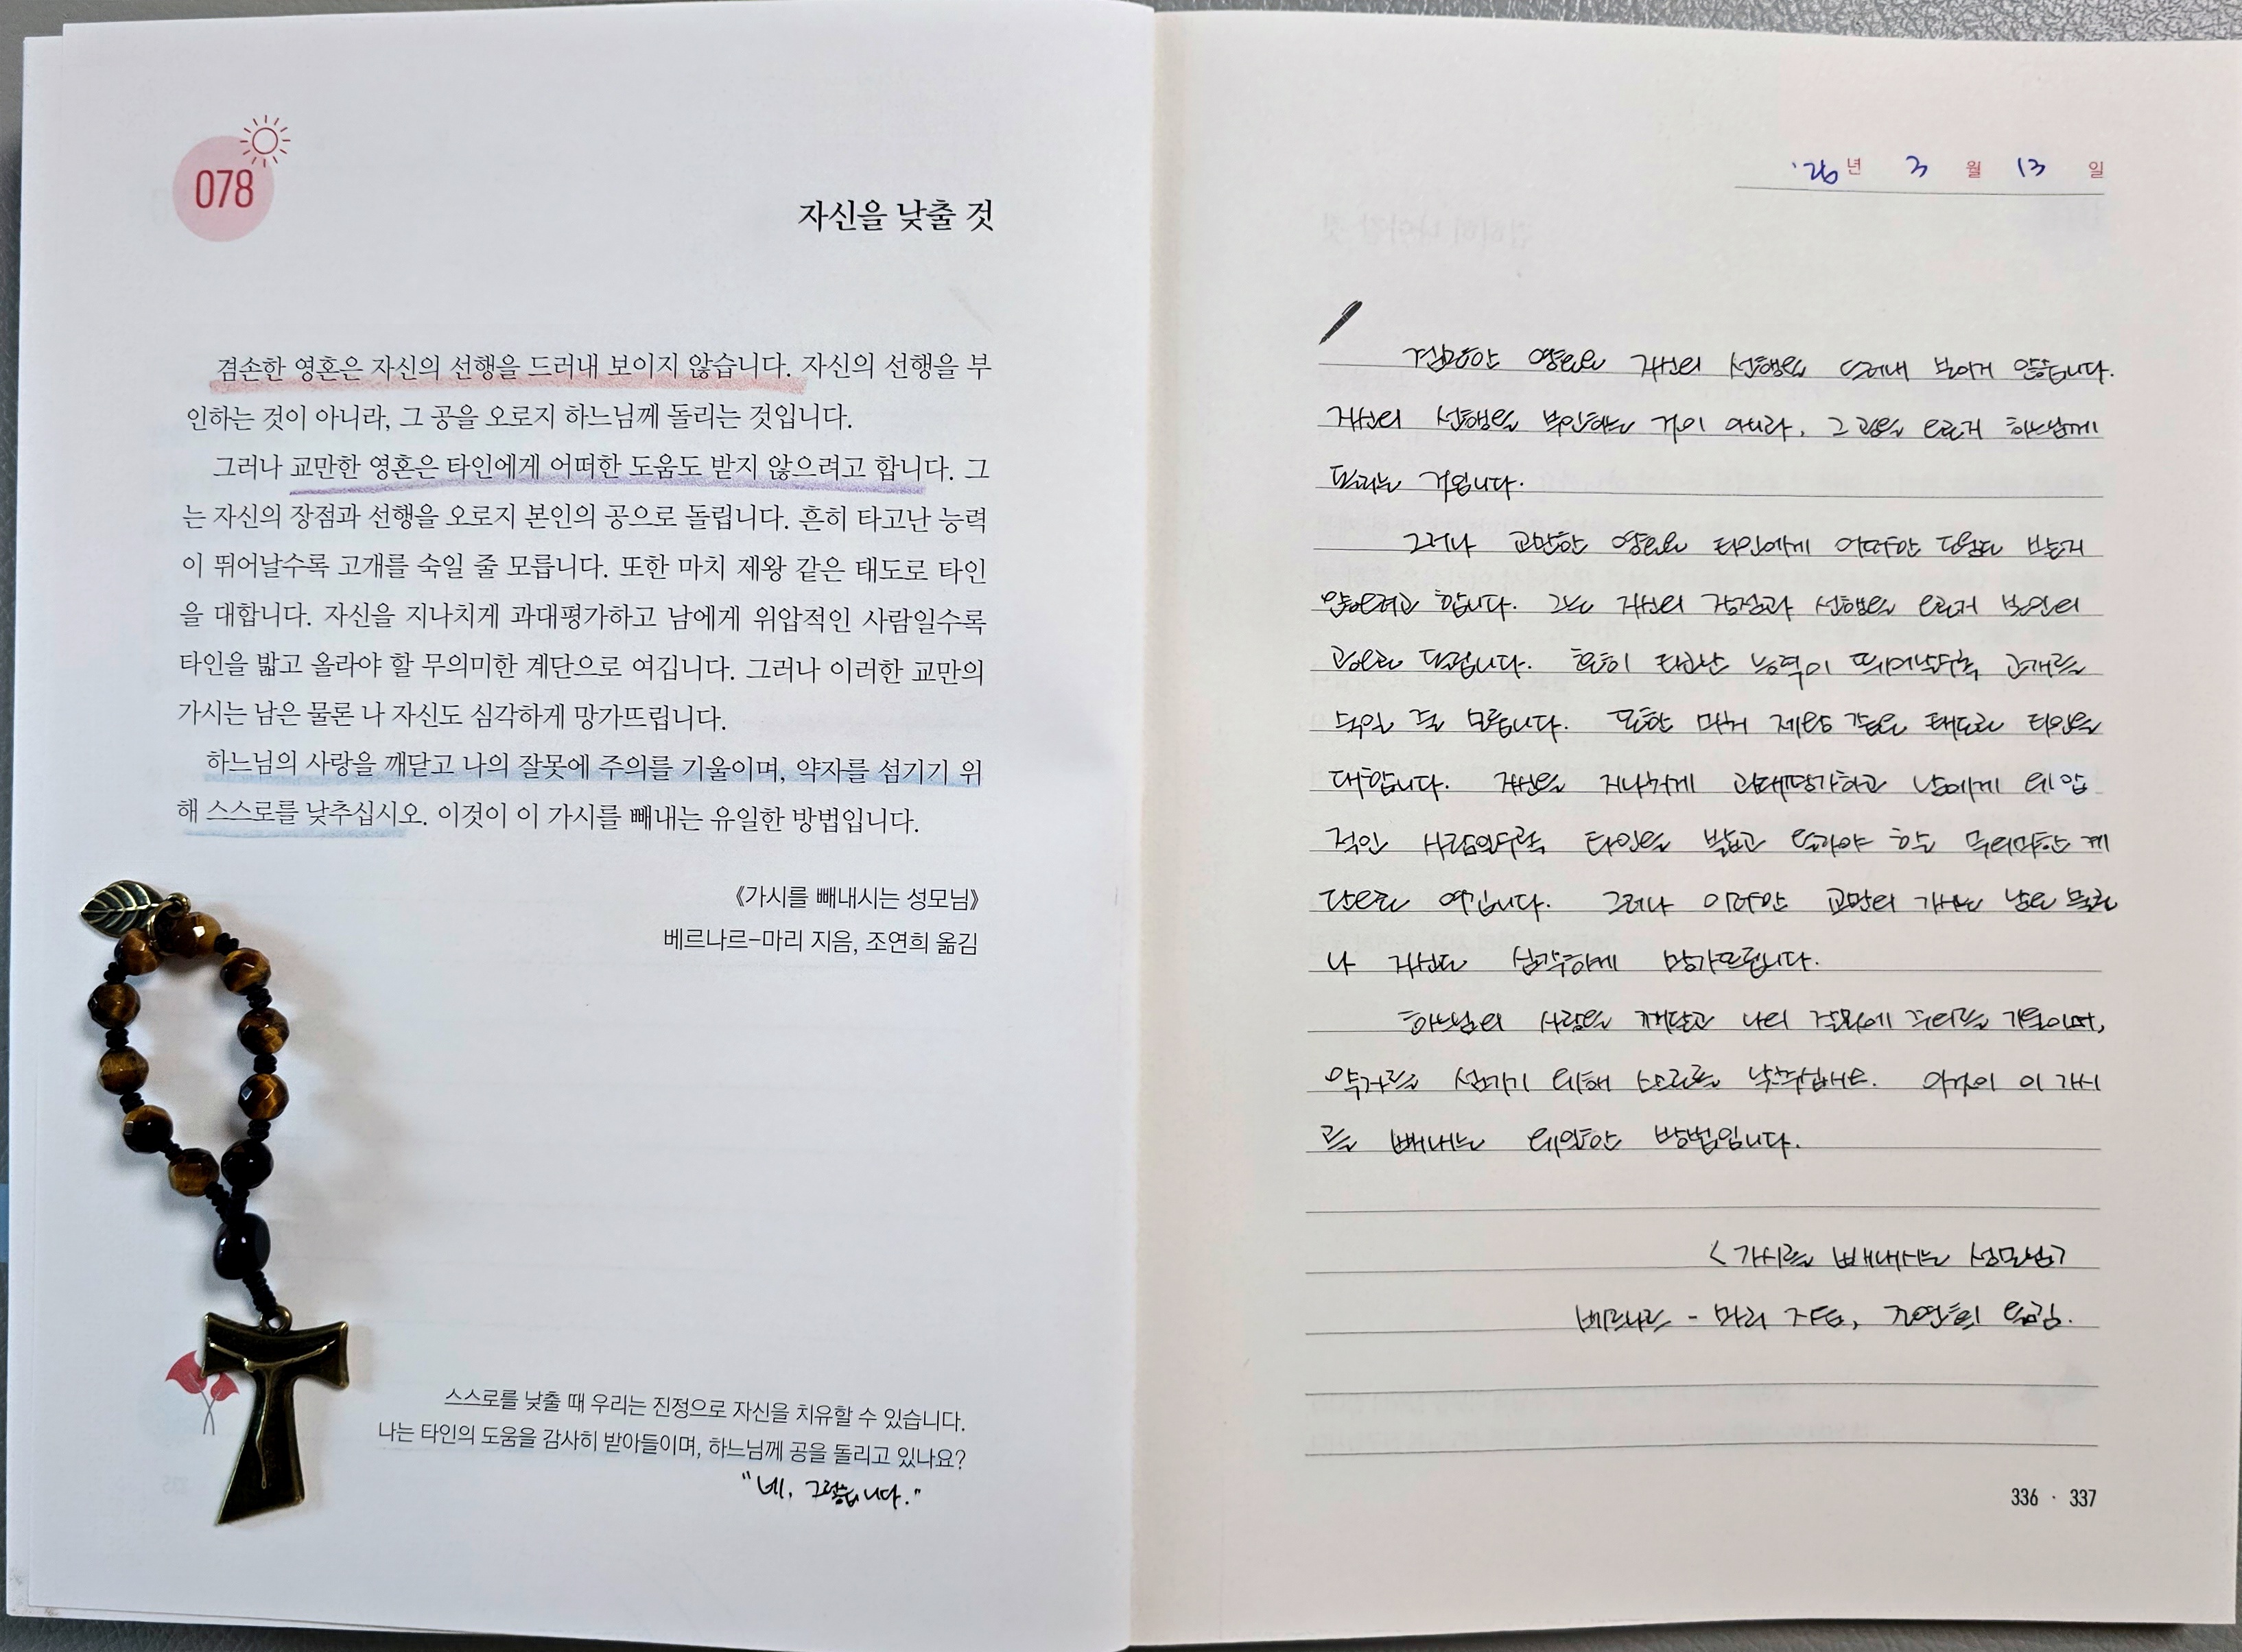 078
자신을 낮출 것
겸손한 영혼은 자신의 선행을 드러내 보이지 않습니다. 자신의 선행을 부
인하는 것이 아니라, 그 공을 오로지 하느님께 돌리는 것입니다.
그러나 교만한 영혼은 타인에게 어떠한 도움도 받지 않으려고 합니다. 그
는 자신의 장점과 선행을 오로지 본인의 공으로 돌립니다. 흔히 타고난 능력
이 뛰어날수록 고개를 숙일 줄 모릅니다. 또한 마치 제왕 같은 태도로 타인
을 대합니다. 자신을 지나치게 과대평가하고 남에게 위압적인 사람일수록
타인을 밟고 올라야 할 무의미한 계단으로 여깁니다. 그러나 이러한 교만의
가시는 남은 물론 나 자신도 심각하게 망가뜨립니다.
하느님의 사랑을 깨닫고 나의 잘못에 주의를 기울이며, 약자를 섬기기 위
해 스스로를 낮추십시오. 이것이 이 가시를 빼내는 유일한 방법입니다.
《가시를 빼내시는 성모님》
베르나르-마리 지음, 조연희 옮김
스스로를 낮출 때 우리는 진정으로 자신을 치유할 수 있습니다.
나는 타인의 도움을 감사히 받아들이며, 하느님께 공을 돌리고 있나요?
"네, 그렇습니다."
'26년 3월 13일
겸손한 영혼은 자신의 선행을 드러내 보이지 않습니다.
자신의 선행을 부인하는 것이 아니라, 그 공을 오로지 하느님께
돌리는 것입니다.
그러나 교만한 영혼은 타인에게 어떠한 도움도 받지
않으려고 합니다. 그는 자신의 장점과 선행을 오로지 본인의
공으로 돌립니다. 흔히 타고난 능력이 뛰어날수록 고개를
숙일 줄 모릅니다. 또한 마치 제왕 같은 태도로 타인을
대합니다. 자신을 지나치게 과대평가하고 남에게 위압
적인 사람일수록 타인을 밟고 올라야 할 무의미한 계
단으로 여깁니다. 그러나 이러한 교만의 가시는 남은 물론
나 자신도 심각하게 망가뜨립니다.
하느님의 사랑을 깨닫고 나의 잘못에 주의를 기울이며,
약자를 섬기기 위해 스스로를 낮추십시오. 이것이 이 가시
를 빼내는 유일한 방법입니다.
<가시를 빼내시는 성모님>
베르나르 - 마리 지음, 조연희 옮김.
336 · 337